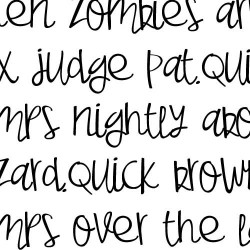 en zombies a
x judge pat.Qui
mps nightly abo
zard.Quick brow
mps over the